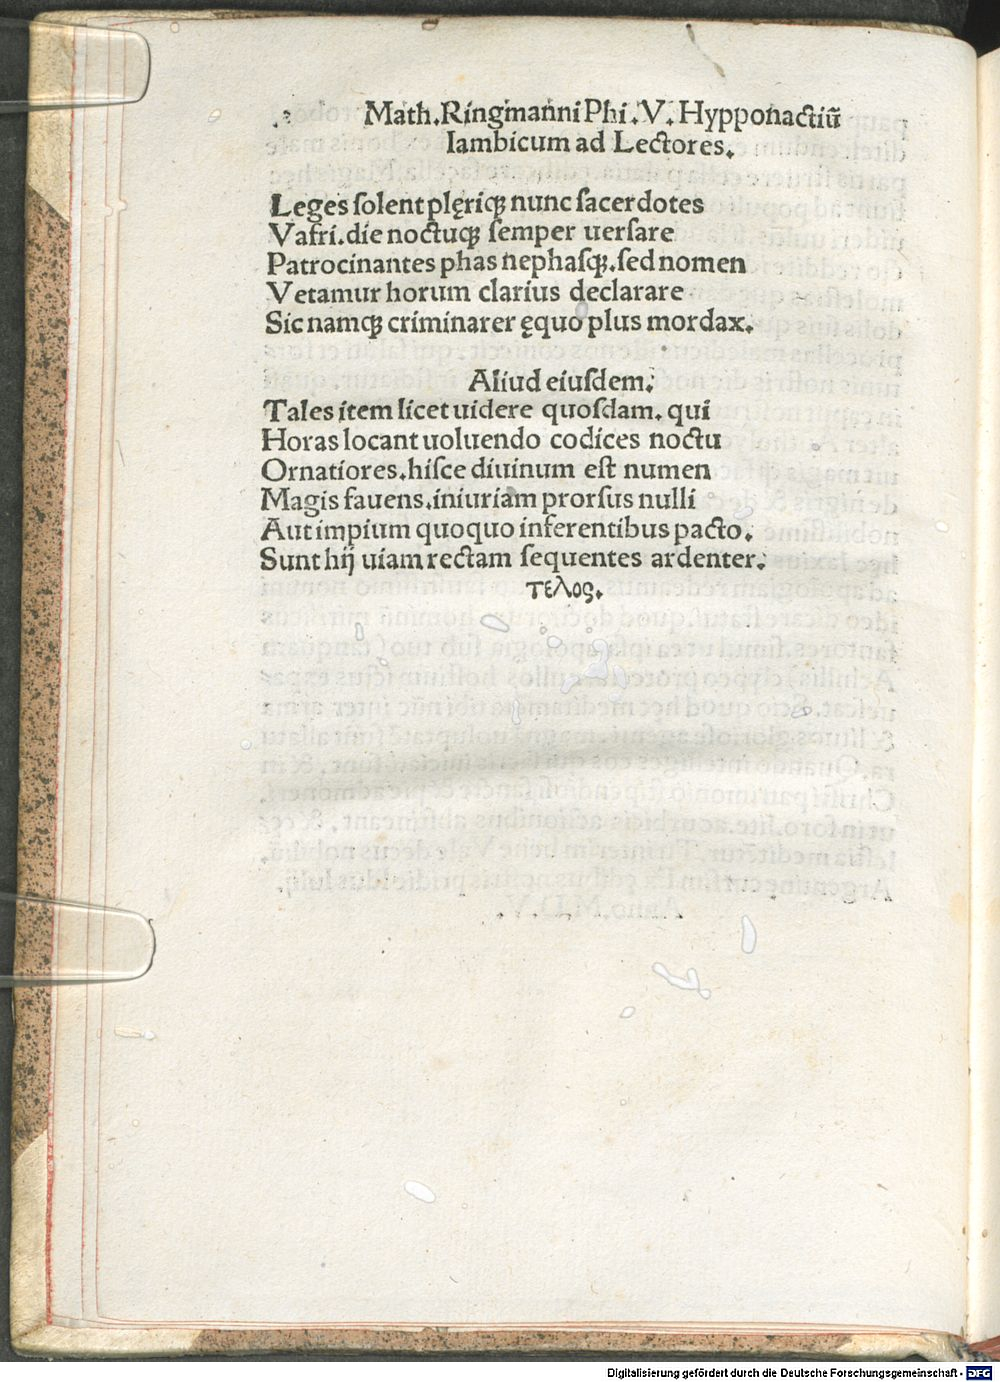 Math. Ringmanni Phi. V. Hypponactiũ
Iambicum ad Lectores.
Leges ſolent plęriqꝫ nunc ſacerdotes
Vafri. die noctuqꝫ ſemper uerſare
Patrocinantes phas nephaſqꝫ. ſed nomen
Vetamur horum clarius declarare
Sic namqꝫ criminarer ęquo plus mordax.
Aliud eiuſdem.
Tales item licet uidere quoſdam. qui
Horas locant uoluendo codices noctu
Ornatiores. hiſce diuinum eſt numen
Magis fauens. iniuriam prorſus nulli
Aut impium quoquo inferentibus pacto.
Sunt hij uiam rectam ſequentes ardenter.
τελος.
Digitalisierung gefördert durch die Deutsche Forschungsgemeinschaft - DFG